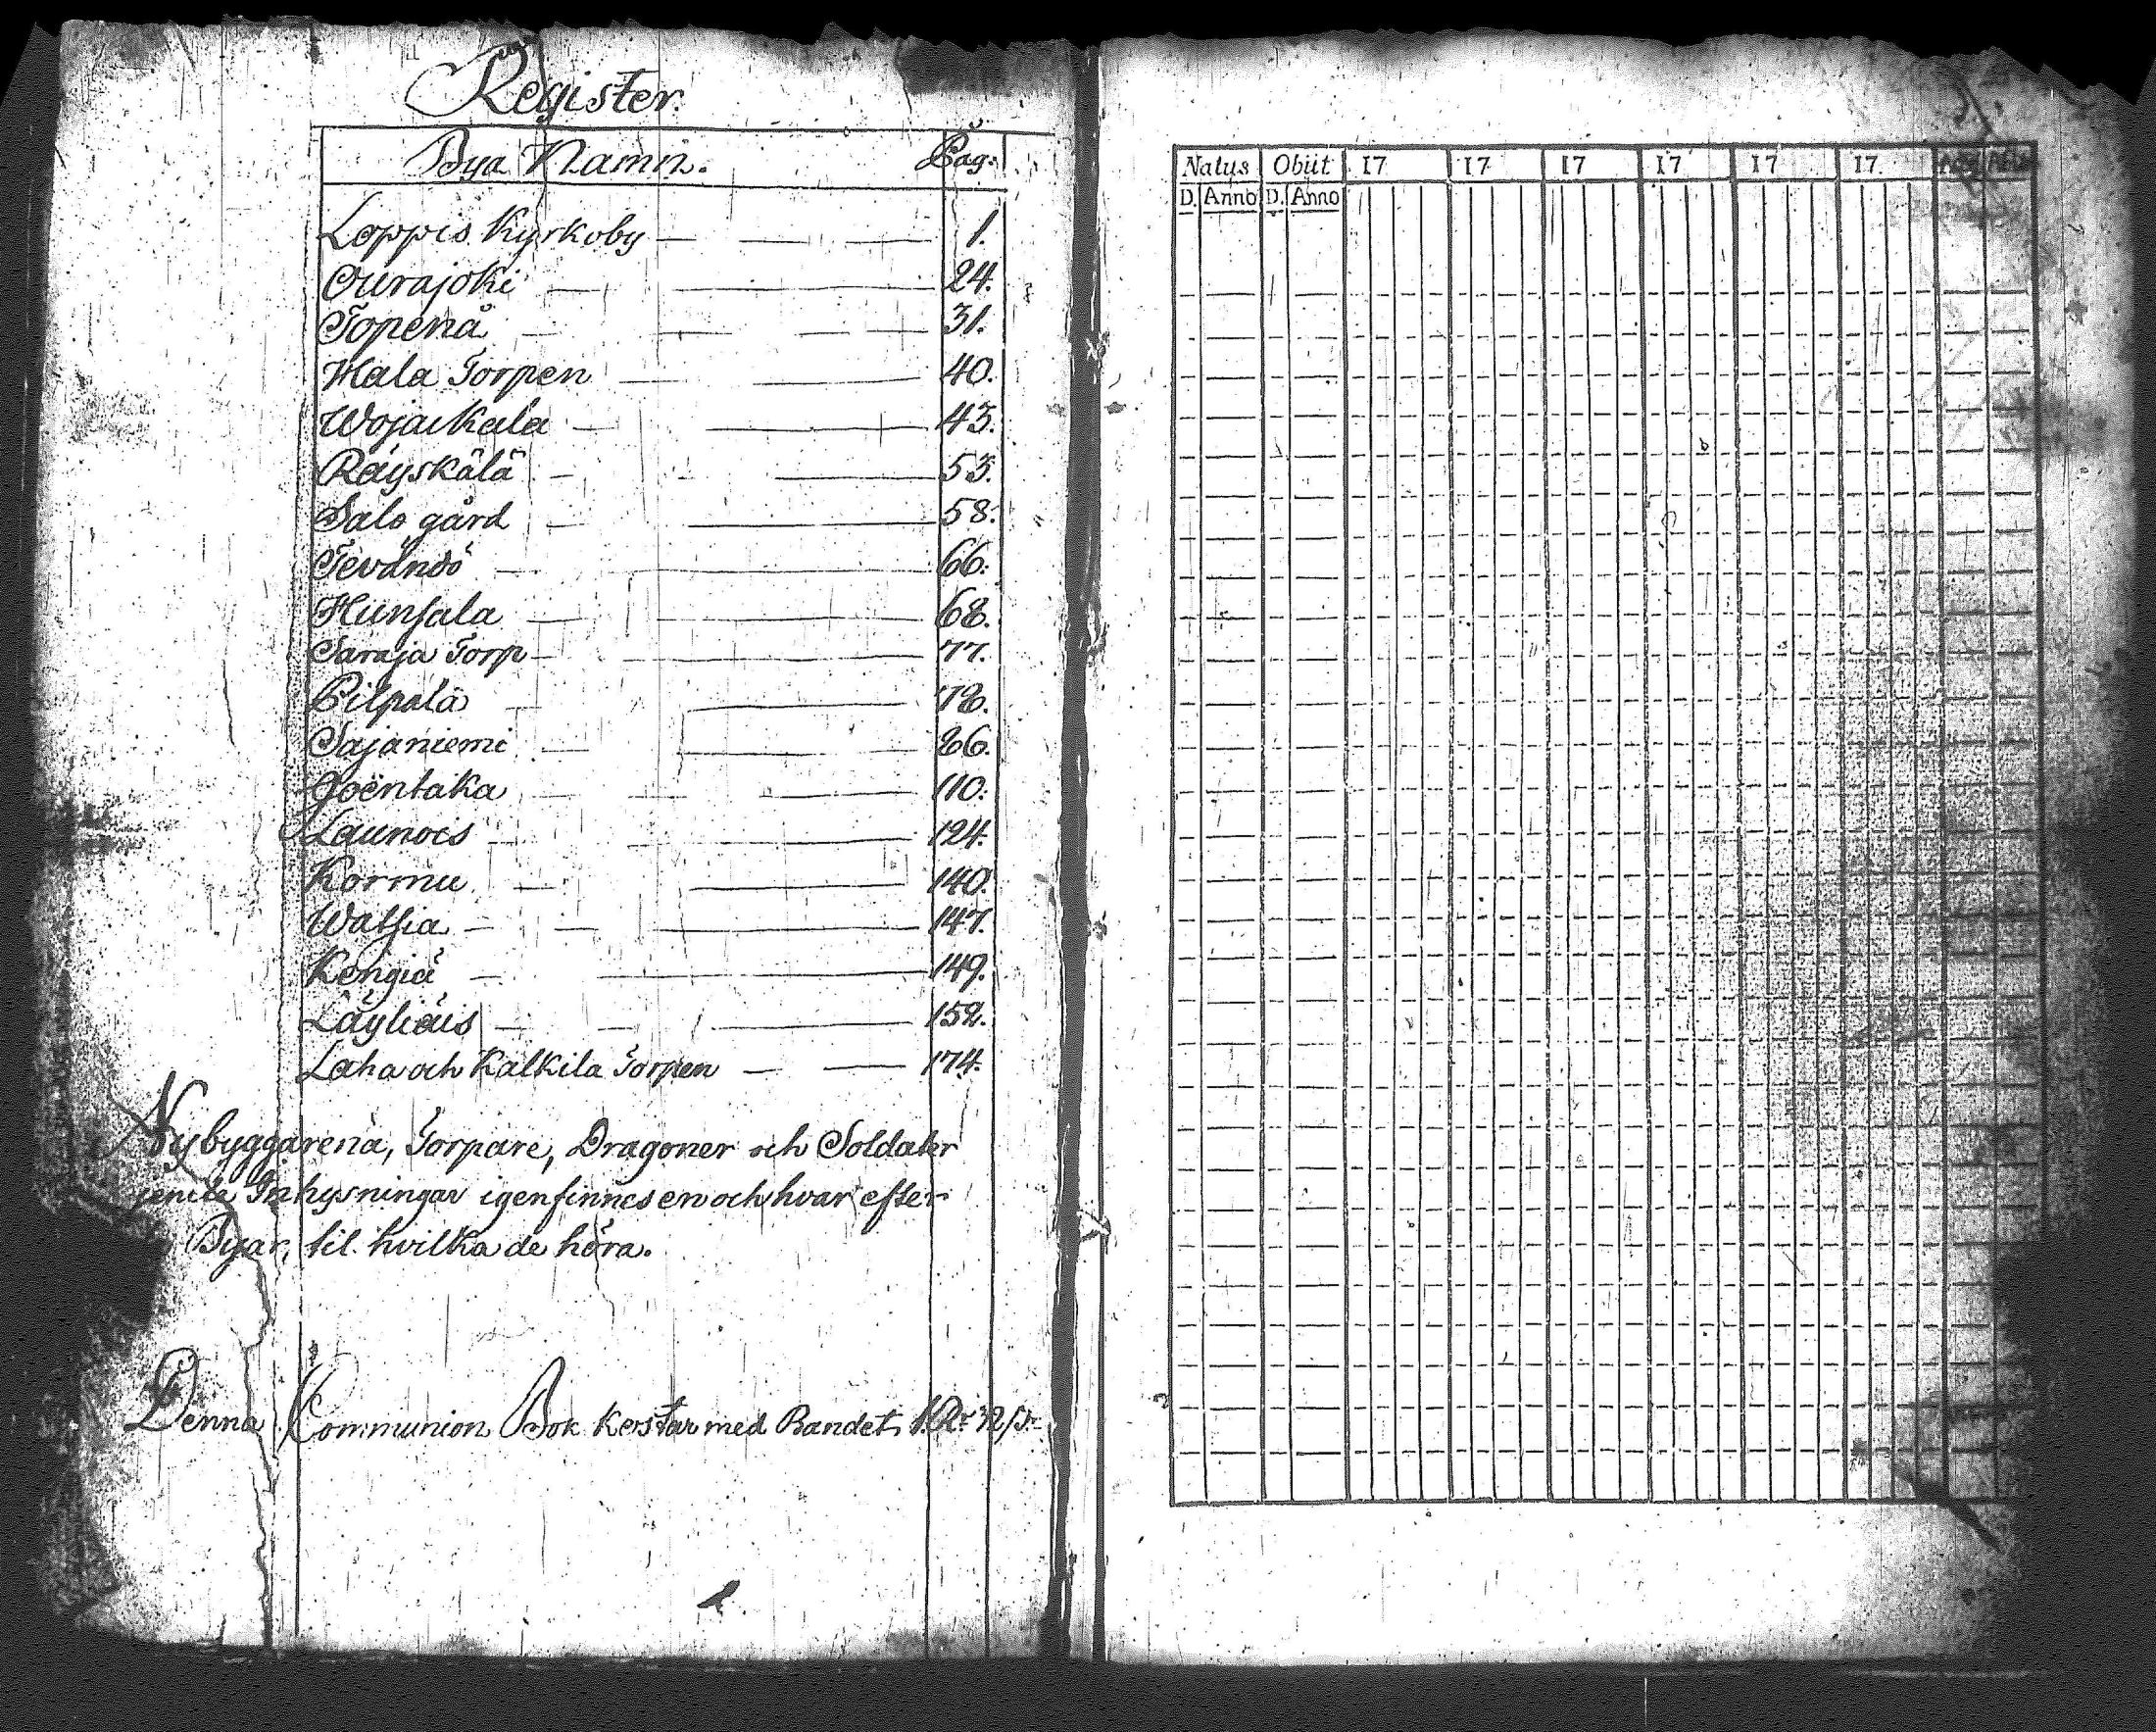 Register.
Bya Namn. Pag:
Loppis Kyrkoby 1.
Ourajoki 24.
Topenå 31.
Hala Torpen 40.
Wojakala 43.
Räyskälä 53.
Salo gård 58.
Tevändö 66.
Hunsala 68.
Saraja Torp 77.
Pilpala 78.
Sajaniemi 86.
Joentaka 110.
Launois 124.
Kormu 140.
Watsia 147.
Kengiä 149.
Läyliäis 152.
Laha och Kalkila Torpen 174.
Nybyggarena, Torpare, Dragoner och Soldater
Inhysningar igenfinnes en och hvar efter
Byar, til hvilka de höra.
Denna Communion Bok kostar med Bandet
Natus Obiit 17 17 17 17 17 17
D. Anno D. Anno